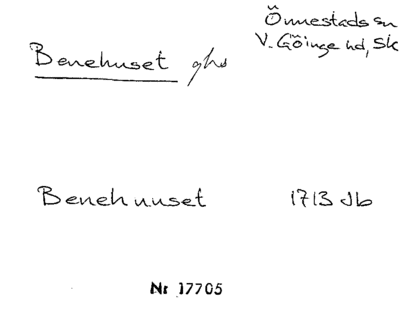 Önnestads sn
Benehuset ghs V. Göinge hd, Sk
Benehuuset 1713 Jb
Nr 17705